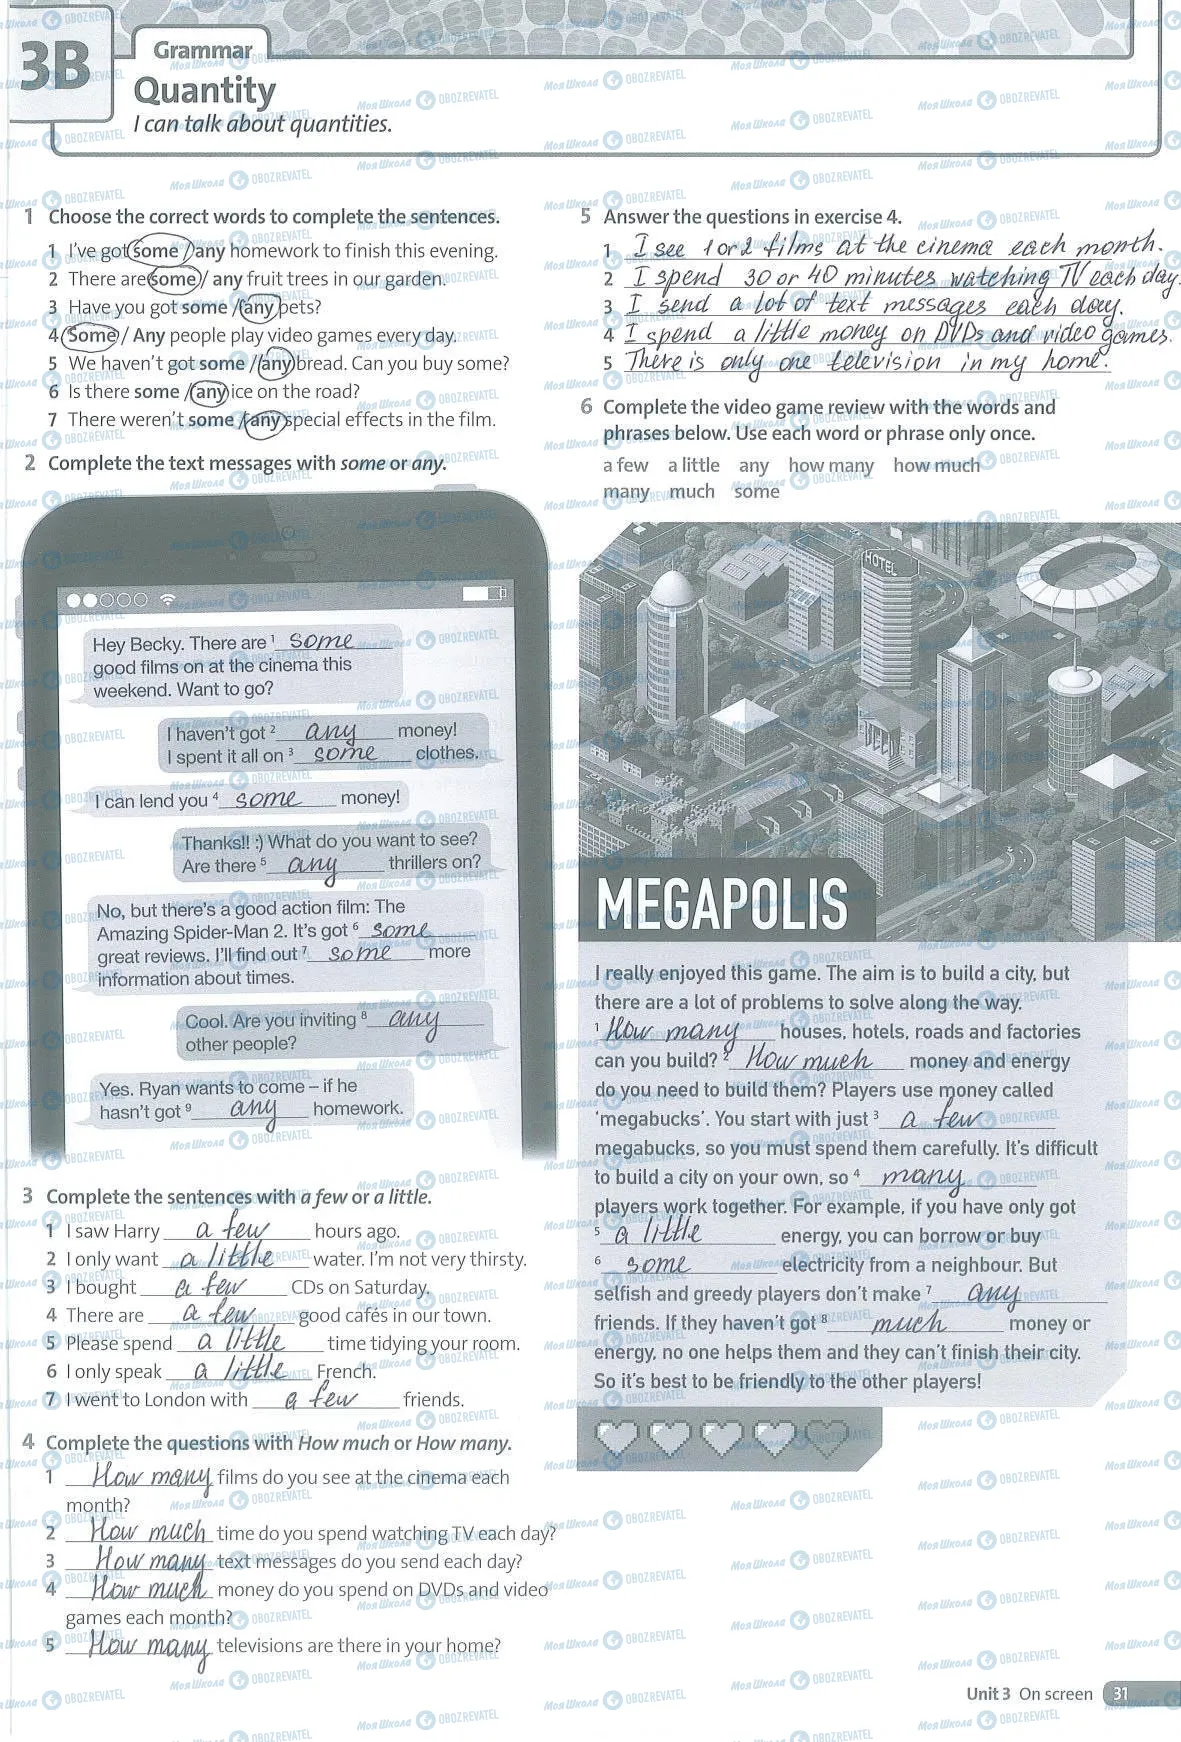 3B
Grammar
Quantity
I can talk about quantities.
1 Choose the correct words to complete the sentences.
1 I've got some / any homework to finish this evening.
2 There are some / any fruit trees in our garden.
3 Have you got some / any pets?
4 Some / Any people play video games every day.
5 We haven't got some / any bread. Can you buy some?
6 Is there some / any ice on the road?
7 There weren't some / any special effects in the film.
2 Complete the text messages with some or any.
Hey Becky. There are 1 some
good films on at the cinema this
weekend. Want to go?
I haven't got 2 any money!
I spent it all on 3 some clothes.
I can lend you 4 some money!
Thanks!! :) What do you want to see?
Are there 5 any thrillers on?
No, but there's a good action film: The
Amazing Spider-Man 2. It's got 6 some
great reviews. I'll find out 7 some more
information about times.
Cool. Are you inviting 8 any
other people?
Yes. Ryan wants to come – if he
hasn't got 9 any homework.
3 Complete the sentences with a few or a little.
1 I saw Harry a few hours ago.
2 I only want a little water. I'm not very thirsty.
3 I bought a few CDs on Saturday.
4 There are a few good cafés in our town.
5 Please spend a little time tidying your room.
6 I only speak a little French.
7 I went to London with a few friends.
4 Complete the questions with How much or How many.
1 How many films do you see at the cinema each
month?
2 How much time do you spend watching TV each day?
3 How many text messages do you send each day?
4 How much money do you spend on DVDs and video
games each month?
5 How many televisions are there in your home?
5 Answer the questions in exercise 4.
1 I see 1 or 2 films at the cinema each month.
2 I spend 30 or 40 minutes watching TV each day.
3 I send a lot of text messages each day.
4 I spend a little money on DVDs and video games.
5 There is only one television in my home.
6 Complete the video game review with the words and
phrases below. Use each word or phrase only once.
a few a little any how many how much
many much some
HOTEL
MEGAPOLIS
I really enjoyed this game. The aim is to build a city, but
there are a lot of problems to solve along the way.
1 How many houses, hotels, roads and factories
can you build? 2 How much money and energy
do you need to build them? Players use money called
'megabucks'. You start with just 3 a few
megabucks, so you must spend them carefully. It's difficult
to build a city on your own, so 4 many
players work together. For example, if you have only got
5 a little energy, you can borrow or buy
6 some electricity from a neighbour. But
selfish and greedy players don't make 7 any
friends. If they haven't got 8 much money or
energy, no one helps them and they can't finish their city.
So it's best to be friendly to the other players!
Unit 3 On screen 31
Моя Школа OBOZREVATEL